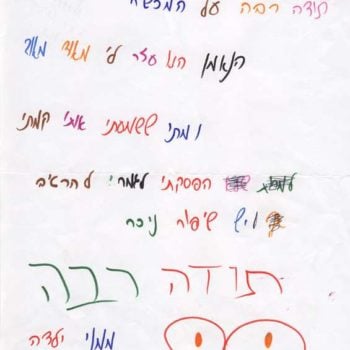 תודה רבה על המכשיר
הנאמן הוא עזר לי מאוד מאוד
ומתי ששמעתי קמתי
הפסקתי לגמרי להרטיב
ויש שיפור ניכר
תודה רבה
ממני